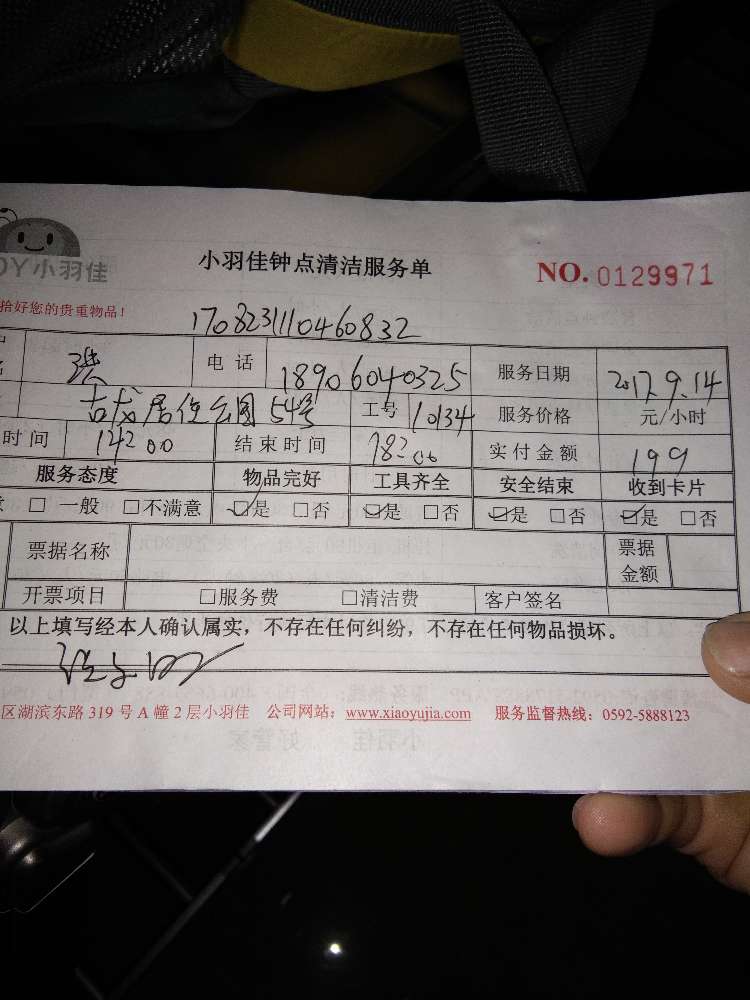 OY小羽佳 小羽佳钟点清洁服务单 NO. 0129971
拾好您的贵重物品！
170823111046083​2
洪 电话 18906040325 服务日期 2017.9.14
古龙居住公园54号 工号 10134 服务价格 元/小时
时间 14:00 结束时间 18:00 实付金额 199
服务态度 物品完好 工具齐全 安全结束 收到卡片
□ 一般 □不满意 ☑是 □否 ☑是 □否 ☑是 □否 ☑是 □否
票据名称 票据金额
开票项目 □服务费 □清洁费 客户签名
以上填写经本人确认属实，不存在任何纠纷，不存在任何物品损坏。
区湖滨东路 319 号 A 幢 2 层小羽佳 公司网站：www.xiaoyujia.com 服务监督热线：0592-5888123